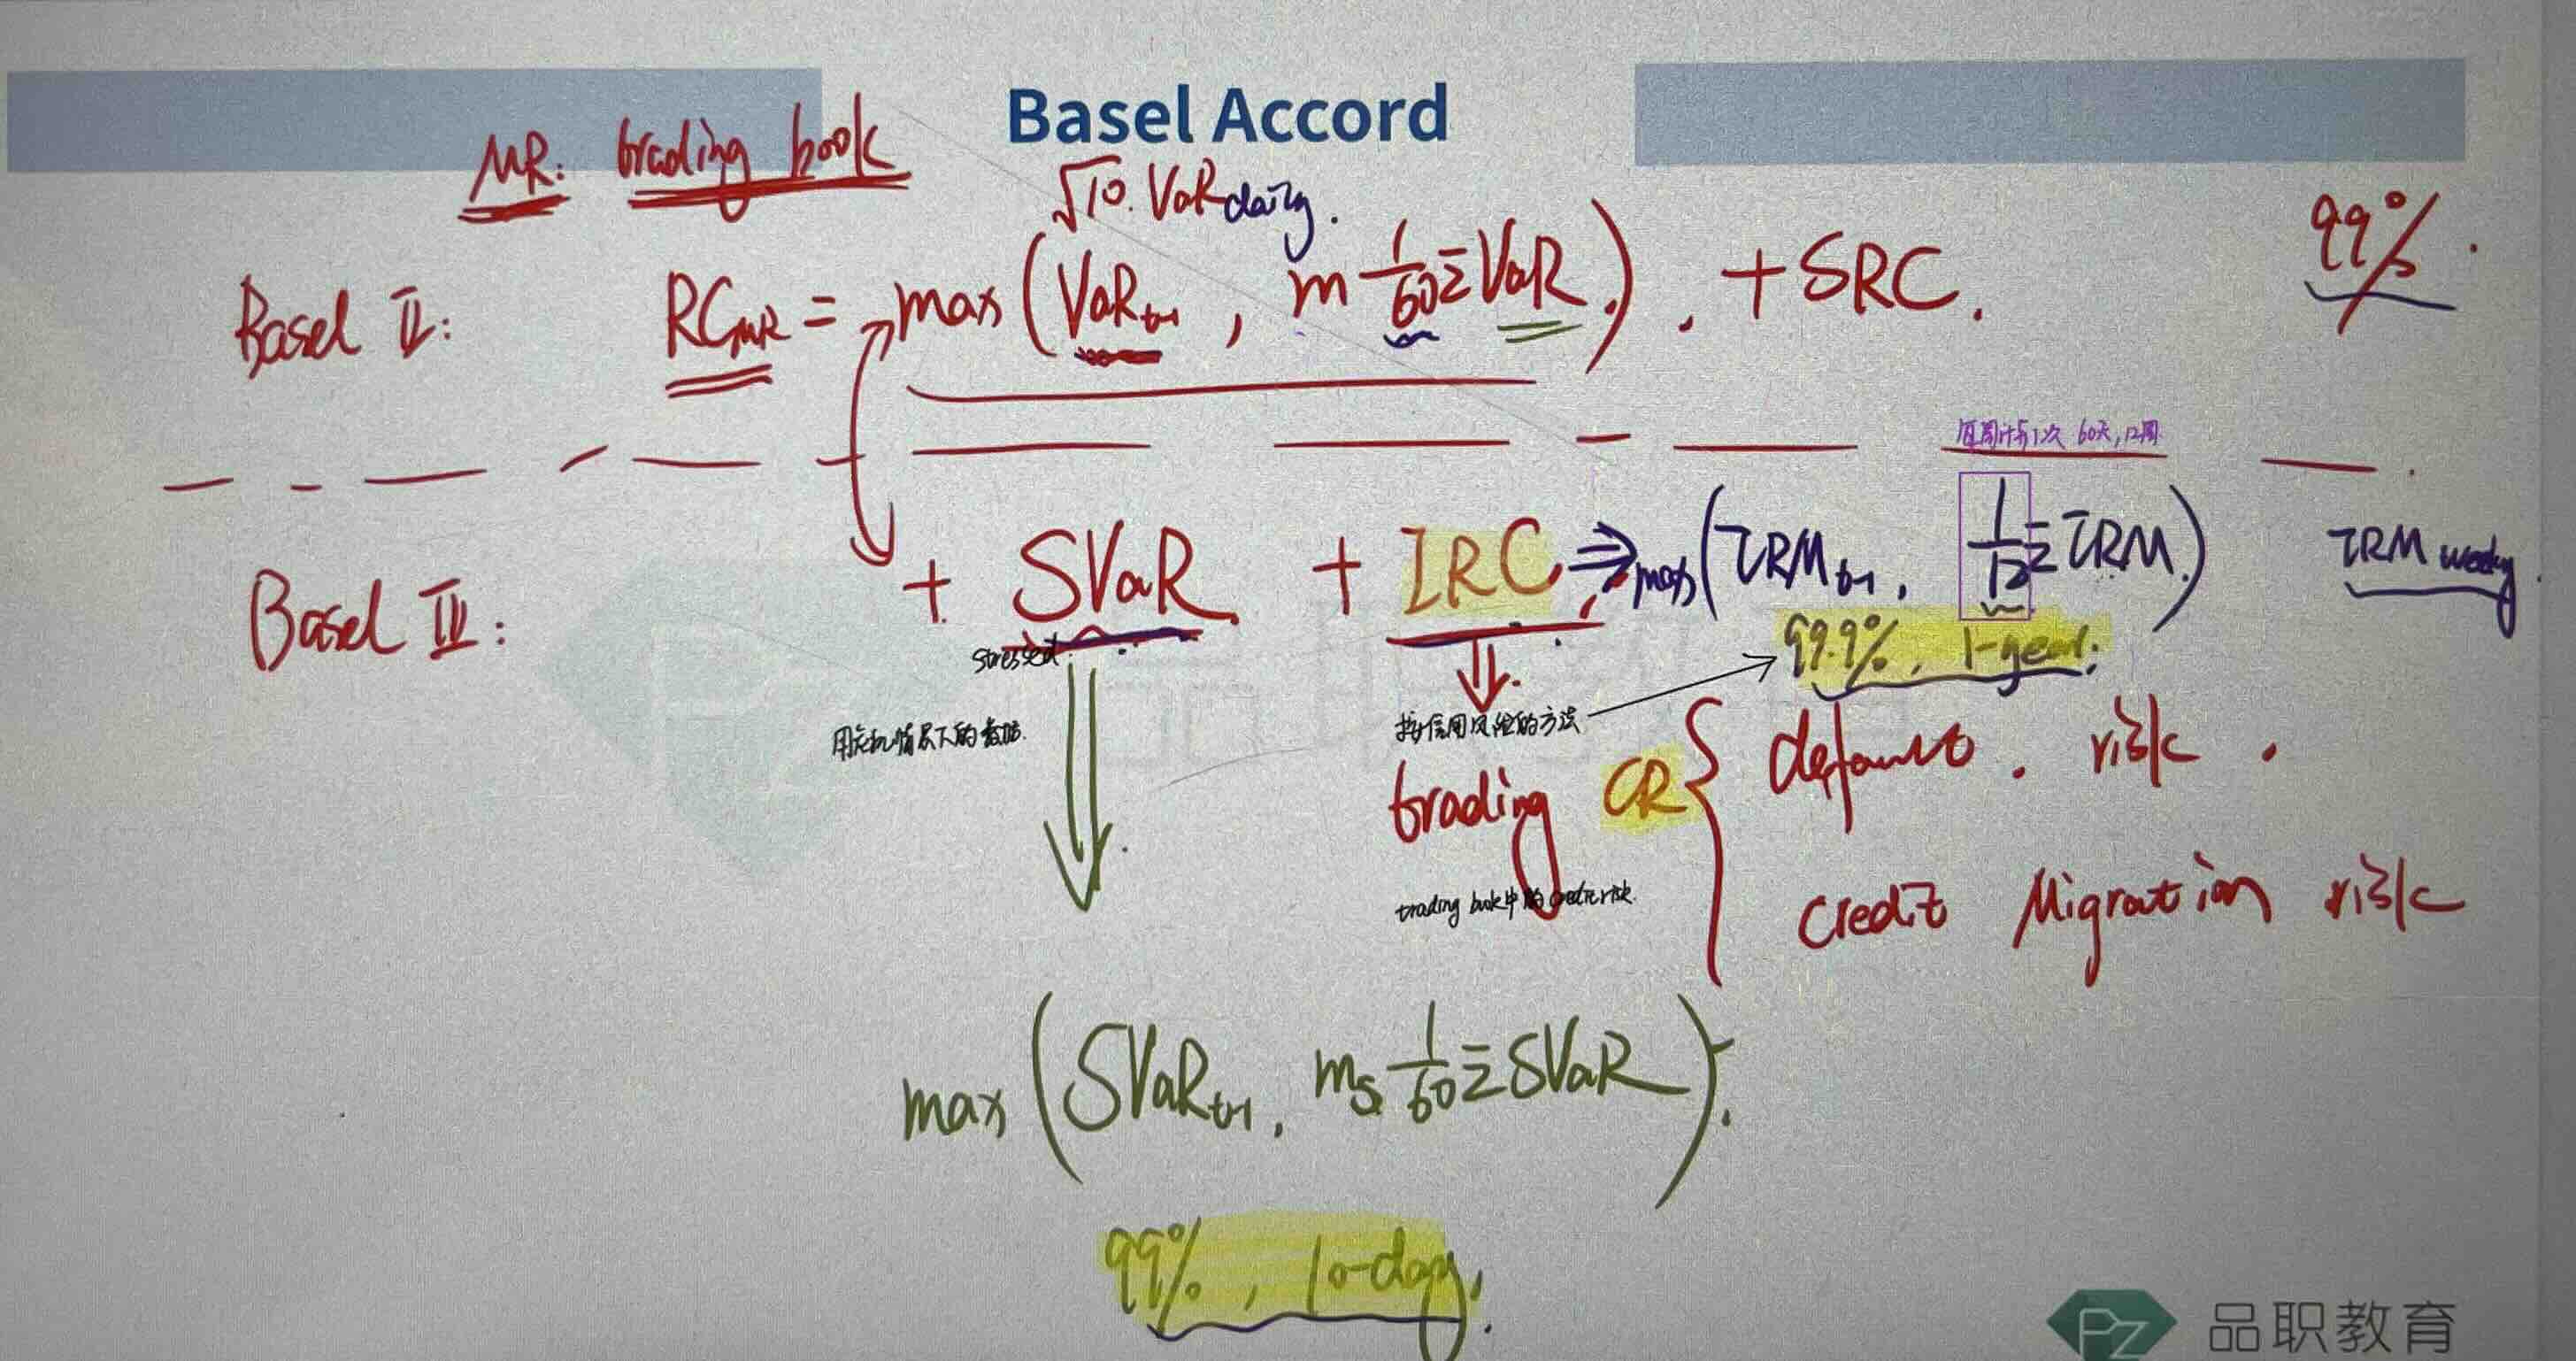 Basel Accord
MR: trading book
√10. VaR daily.
99%.
Basel II: RC_MR = max (VaR_t-1, m 1/60 Σ VaR.). + SRC.
每周计算1次 60天, 12周
Basel III: + SVaR + IRC. ⇒ max (IRM_t-1, 1/12 Σ IRM.) IRM weekly.
stressed
99.9%, 1-year.
用危机情景下的数据.
按信用风险的方法
trading CR { default. risk.
trading book中的credit risk.
credit Migration risk
max (SVaR_t-1, m_s 1/60 Σ SVaR).
99%, 10-day.
PZ 品职教育